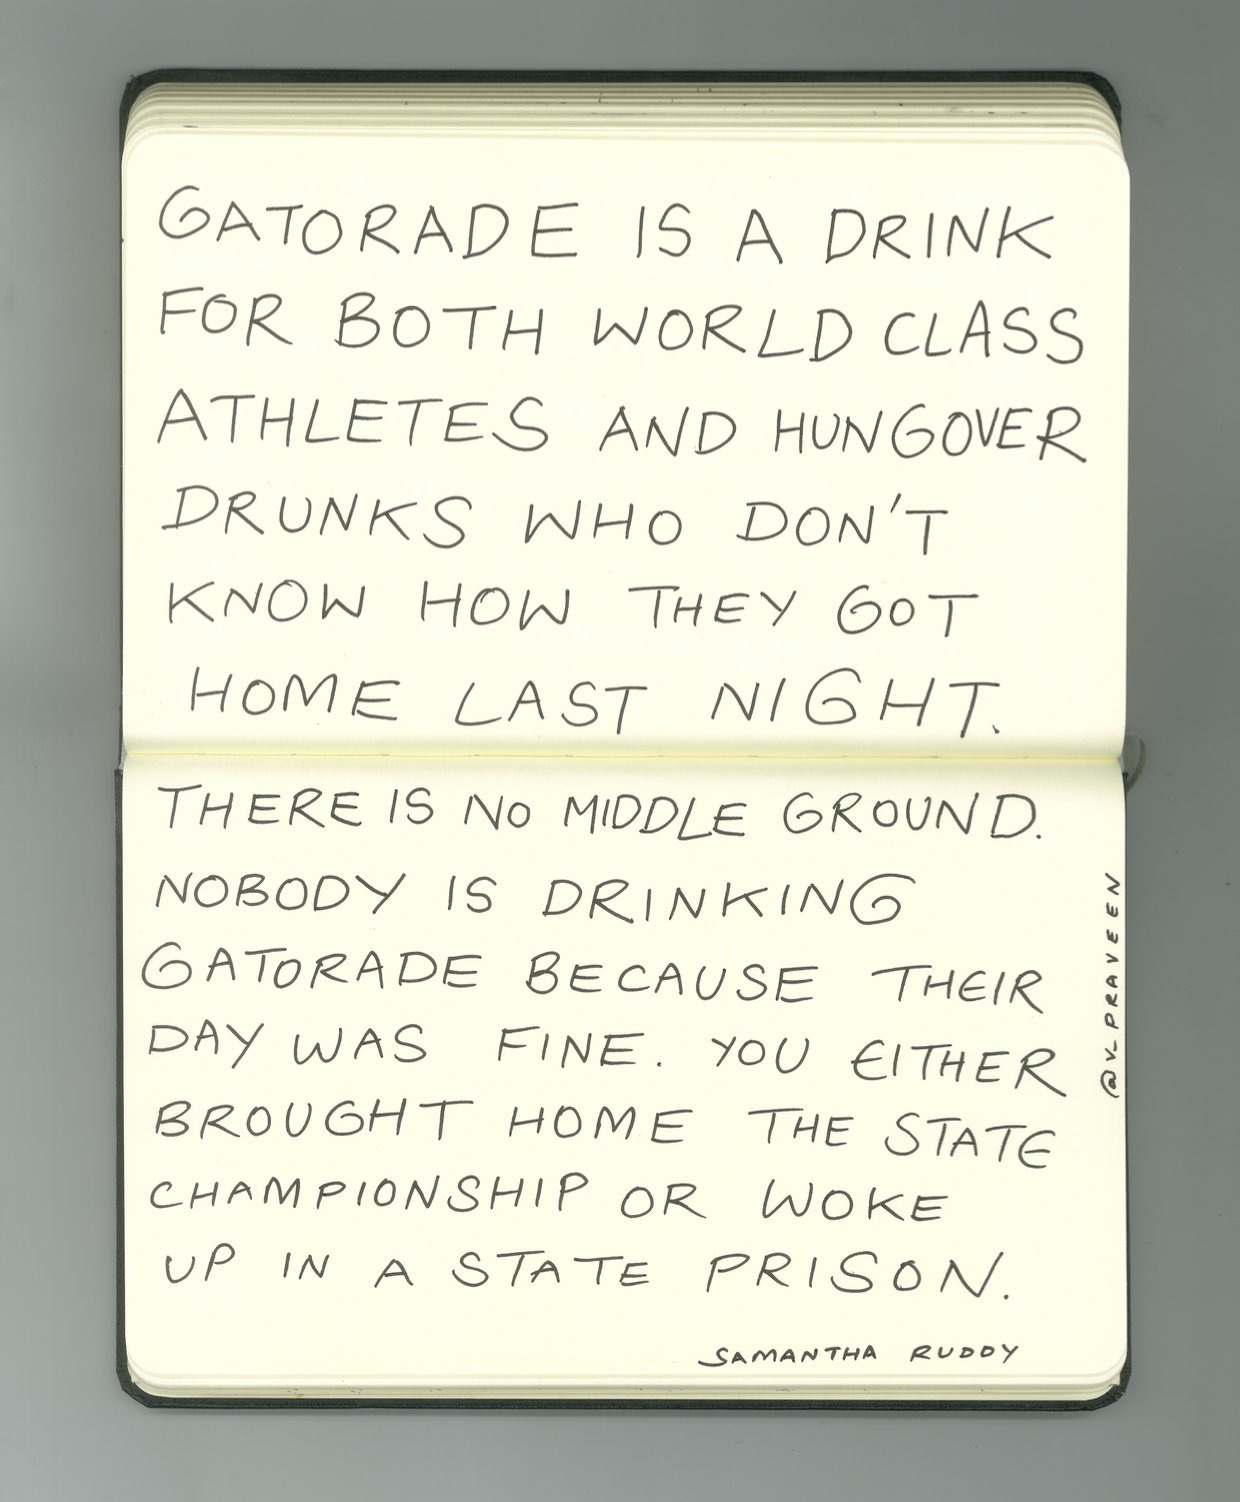 GATORADE IS A DRINK
FOR BOTH WORLD CLASS
ATHLETES AND HUNGOVER
DRUNKS WHO DON'T
KNOW HOW THEY GOT
HOME LAST NIGHT.
THERE IS NO MIDDLE GROUND.
NOBODY IS DRINKING
GATORADE BECAUSE THEIR
DAY WAS FINE. YOU EITHER
BROUGHT HOME THE STATE
CHAMPIONSHIP OR WOKE
UP IN A STATE PRISON.
SAMANTHA RUDDY
@V_PRAVEEN